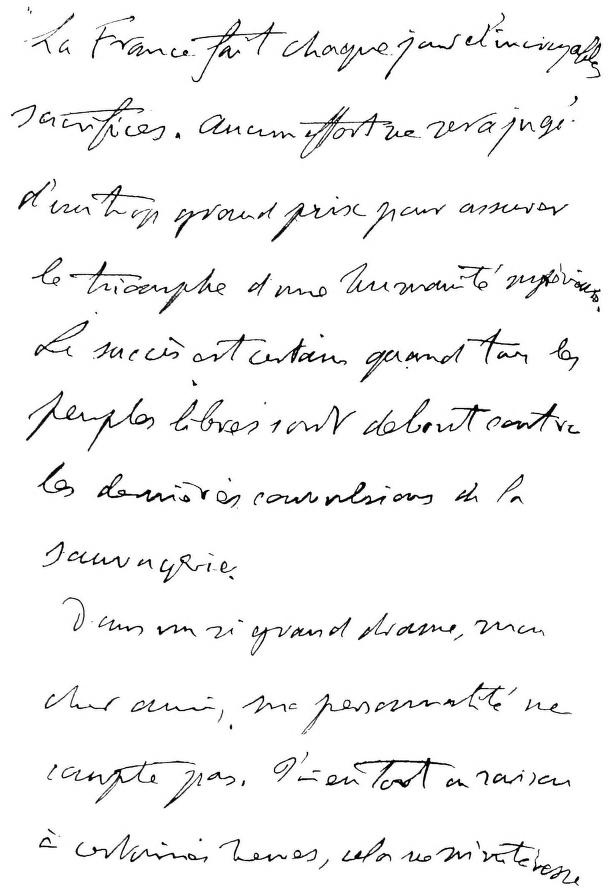 La France fait chaque jour d'incroyables
sacrifices. Aucun effort ne sera jugé
d'un trop grand prix pour assurer
le triomphe d'une humanité supérieure.
Le succès est certain quand tous les
peuples libres sont debout contre
les dernières convulsions de la
sauvagerie.
Dans un si grand drame, mon
cher ami, ma personnalité ne
compte pas. J'ai eu tort ou raison
à certaines heures, cela ne m'intéresse